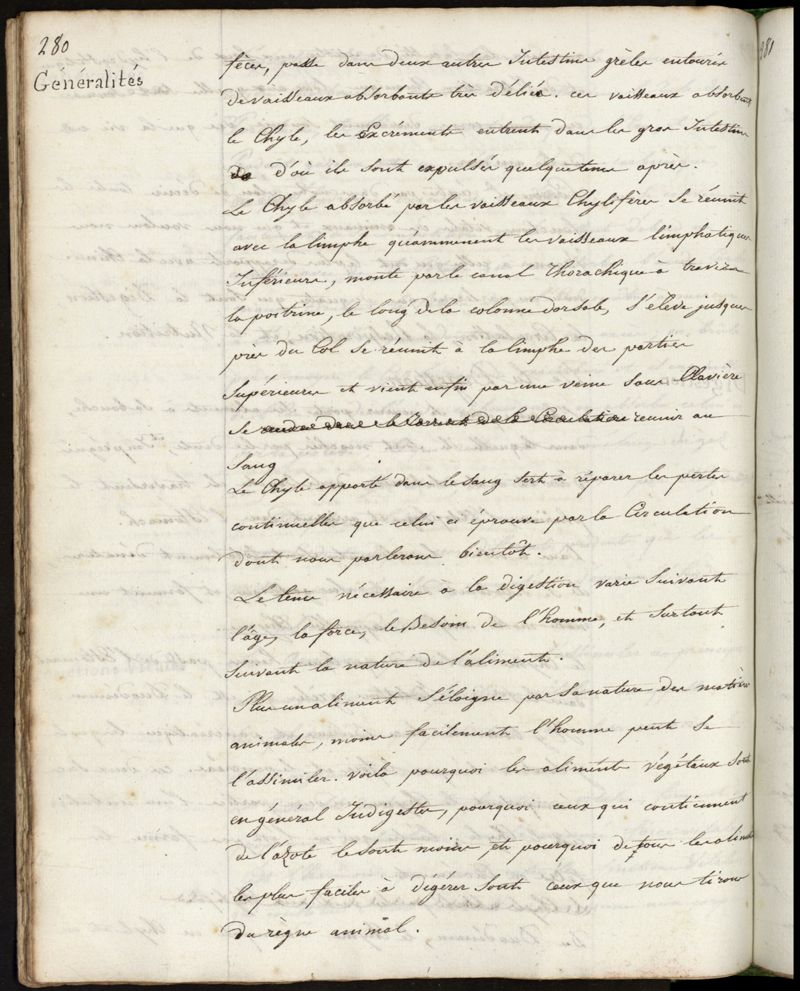 280
Généralités
fèces, passe dans deux autres Intestins grèles entourés
de vaisseaux absorbants très déliés. ces vaisseaux absorbent
le Chyle, les Excréments entrent dans les gros Intestins
d'où ils sont expulsés quelque tems après.
Le Chyle absorbé par les vaisseaux Chylifères se réunit
avec la limphe qu'ammenent les vaisseaux limphatiques
Inférieurs, monte par le canal Thorachique à travers
la poitrine, le long de la colonne dorsale, s'élève jusques
près du Col se réunit à la limphe des parties
Supérieures et vient enfin par une veine sous Clavière
se rendre dans le Torrent de la Circulation reunir au
Sang
Le Chyle apporté dans le sang sert à réparer les pertes
continuelles que celui ci éprouve par la Circulation
dont nous parlerons bientôt.
Le tems nécessaire à la digestion varie Suivant
l'âge, la force, le Besoin de l'homme, et Surtout
Suivant la nature de l'aliment.
Plus un aliment s'éloigne par sa nature des matières
animales, moins facilement l'homme peut se
l'assimiler. voilà pourquoi les aliments végétaux sont
en général Indigestes, pourquoi ceux qui contiennent
de l'azote le sont moins, et pourquoi de tous les aliments
les plus faciles à digérer sont ceux que nous tirons
du règne animal.
281